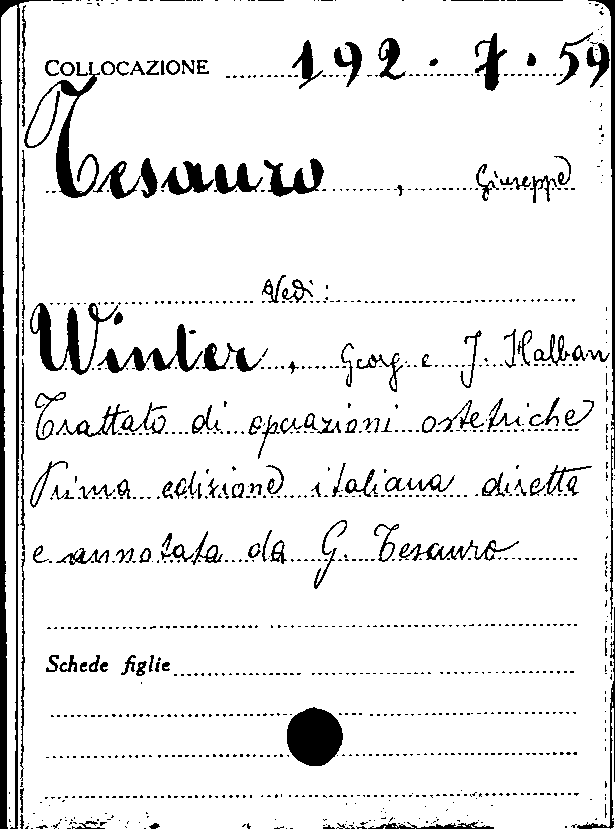 COLLOCAZIONE 192.7.59
Tesauro, Giuseppe
Vedi:
Winter, Georg e J. Halban
Trattato di operazioni ostetriche
Prima edizione italiana diretta
e annotata da G. Tesauro
Schede figlie